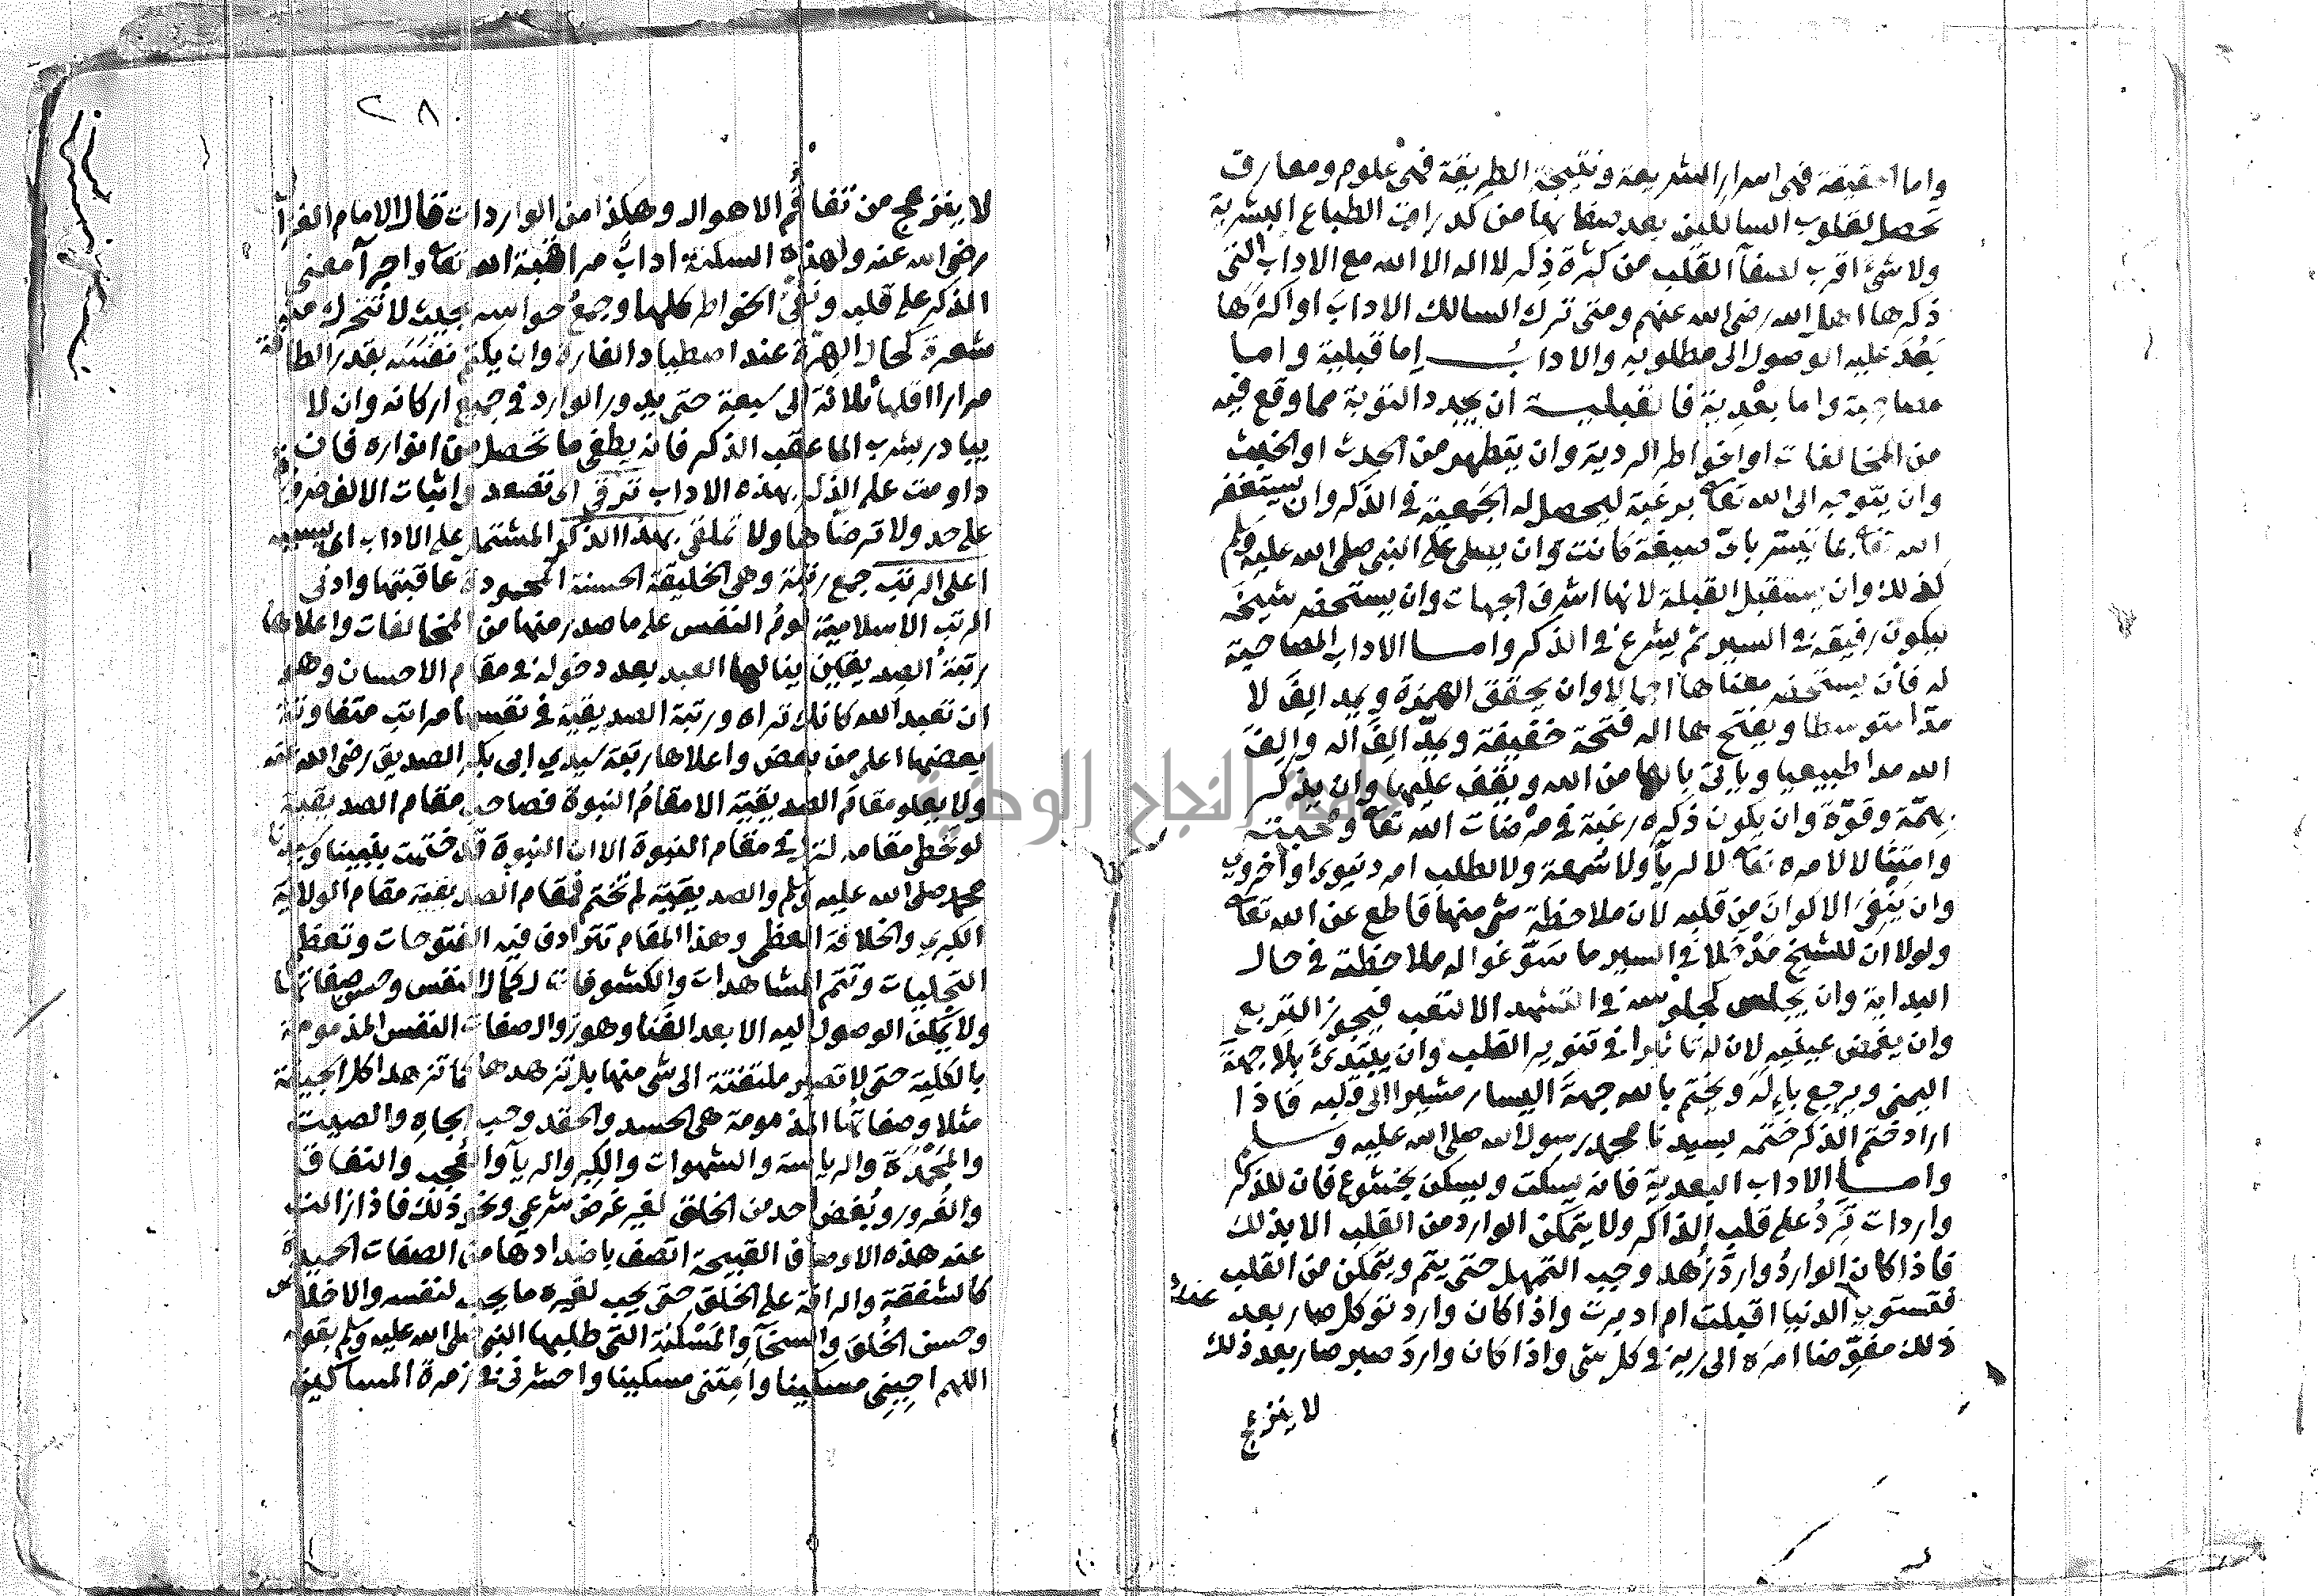 واما الحقيقة فهى اسرار الشريعة ونتيجة الطريقة فهى علوم ومعارف
تحصل لقلوب السالكين بعد صفائها من كدرات الطباع البشرية
ولا شئ اقرب لصفآ القلب من كثرة ذكر لا اله الا الله مع الاداب التى
ذكرها اهل الله رضى الله عنهم ومتى ترك السالك الاداب او اكثرها
بَعُدَ عليه الوصول الى مطلوبه والاداب إما قبلية واما
مصاحبة واما بعْدية فالقبلية ان يجدد التوبة مما وقع فيه
من المخالفات او الخواطر الردية وان يتطهر من الحدث او الخبث
وان يتوجه الى الله تعا برغبة ليحصل له الجمعية فى الذكر وان يستغفر
الله تعا بما تيسر باى صيغة كانت وان يصلى على النبى صلى الله عليه وسلم
كذلك وان يستقبل القبلة لانها اشرف الجهات وان يستحضر شيخه
ليكون رفيقه فى السير ثم يشرع فى الذكر واما الاداب المصاحبة
له فأن يستحضر معناها اجمالا وان يحقق الهمزة ويمد الِفَ لا
مدّا متوسطا ويفتح ها اله فتحة خفيفة ويمدّ الِفَ اله والِفَ
الله مدا طبيعيا وياتى بالها من الله ويقف عليها وان يذكر
بهمّة وقوّة وان يكون ذكره رغبة فى مرْضات الله تعا ومحبته
وامتثالا لامره تعا لا لريآ ولا سُمعة ولا لطلب امر دنيوى او اخروى
وان يَنْفِىَ الاكوانَ مِن قلبه لان ملاحظة شى منها قاطع عن الله تعا
ولولا ان للشيخ مَدْخلا فى السير ما سَوّغوا له ملاحظته فى حال
البداية وان يجلس كجلوسه فى التشهد الا لتعب فيجوز التربع
وان يغمض عينيه لان له تاثيرا فى تنوير القلب وان يبتدئ بلا جهةَ
اليمنى ويرجع بإله ويختم بالله جهةَ اليسار مشيرا الى قلبه فاذا
اراد ختم الذكر ختمه بسيدنا محمد رسول الله صلى الله عليه وسلم
واما الاداب البعدية فانه يسكت ويسكن بخشوع فان للذكر
واردات تَرِدُ على قلب الذاكر ولا يتمكن الوارد من القلب الا بذلك
فاذا كان الواردُ واردَ زُهد وجب التمهل حتى يتم ويتمكن من القلب
فتستوى الدنيا اقبلت ام ادبرت واذا كان وارد توكل صار بعد عنده
ذلك مفوّضا امرَه الى ربه فى كل شى واذا كان واردَ صبر صار بعد ذلك
لا ينزعج
٢٨٠
لا ينزعج من تفاقُم الاهوال وهكذا من الواردات قال الامام الغزآ
رضى الله عنه ولهذه السكتة ادابٌ مراقبة الله تعا واجرآ معنى
الذكر على قلبه ونفىُ الخواطر كلها وجمعُ حواسه بحيث لا تتحرك منه
شعرة كحال الهرّة عند اصطياد الفارة وان يكتم نَفَسَه بقدر الطاقة
مرارا اقلها ثلاثة الى سبعة حتى يدور الوارد فى جميع اركانه وان لا
يبادر بشرب الما عقب الذكر فانه يطفى ما تحصل من انواره فان
داومت على الذكر بهذه الاداب ترقى اى تصعد واثبات الالف
على حد ولا ترضاها ولا تملق بهذا الذكر المشتمل على الاداب اى بسببه
اعلى الرتب جمع رتبة وهى الخليقة الحسنة المحمودة عاقبتها وادنى
الرتب الاسلامية لومُ النفس على ما صدر منها من المخالفات واعلاها
رتبةُ الصديقين ينالها العبد بعد دخوله فى مقام الاحسان وهو
ان تعبد الله كانك تراه ورتبة الصديقية فى نفسها مراتب متفاوتة
بعضها اعلى من بعض واعلاها رتبة سيدى ابى بكر الصديق رضى الله عنه
ولا يعلو مقامَ الصديقية الا مقامُ النبوة فصاحب مقام الصديقية
لو تخطى مقامه لنزل فى مقام النبوة الا ان النبوة قد ختمت بنبينا وسيدنا
محمد صلى الله عليه وسلم والصديقية لم تختم فمقام الصديقية مقام الولاية
الكبرى والخلافة العظمى وهذا المقام تترادف فيه الفتوحات وتعظم
التجليات وتتم المشاهدات والكشوفات لكمال النفس وحسن صفاتها
ولا يمكن الوصول اليه الا بعد الفنا وهو زوال صفات النفس المذمومة
بالكلية حتى لا تصير ملتفتة الى شى منها بل تزهدها كما تزهد اكل الجيفة
مثلا وصفاتُها المذمومة هى الحسد والحقد وحب الجاه والصيت
والمَحْمَدَة والرياسة والشهوات والكِبر والريآ والعُجب والنفاق
والغُرور وبُغض احد من الخلق لغير غرض شرعى ونحو ذلك فاذا زالت
عنه هذه الاوصاف القبيحة اتصف باضدادها من الصفات الحميدة
كالشفقة والرافة على الخلق حتى يحب لغيره ما يحب لنفسه والاخلاص
وحسن الخُلق والسخآ والمَسْكنة التى طلبها النبى صلى الله عليه وسلم بقوله
اللهم احيِنِى مسكينا وامِتنى مسكينا واحشرنى فى زمرة المساكين
جامعة النجاح الوطنية